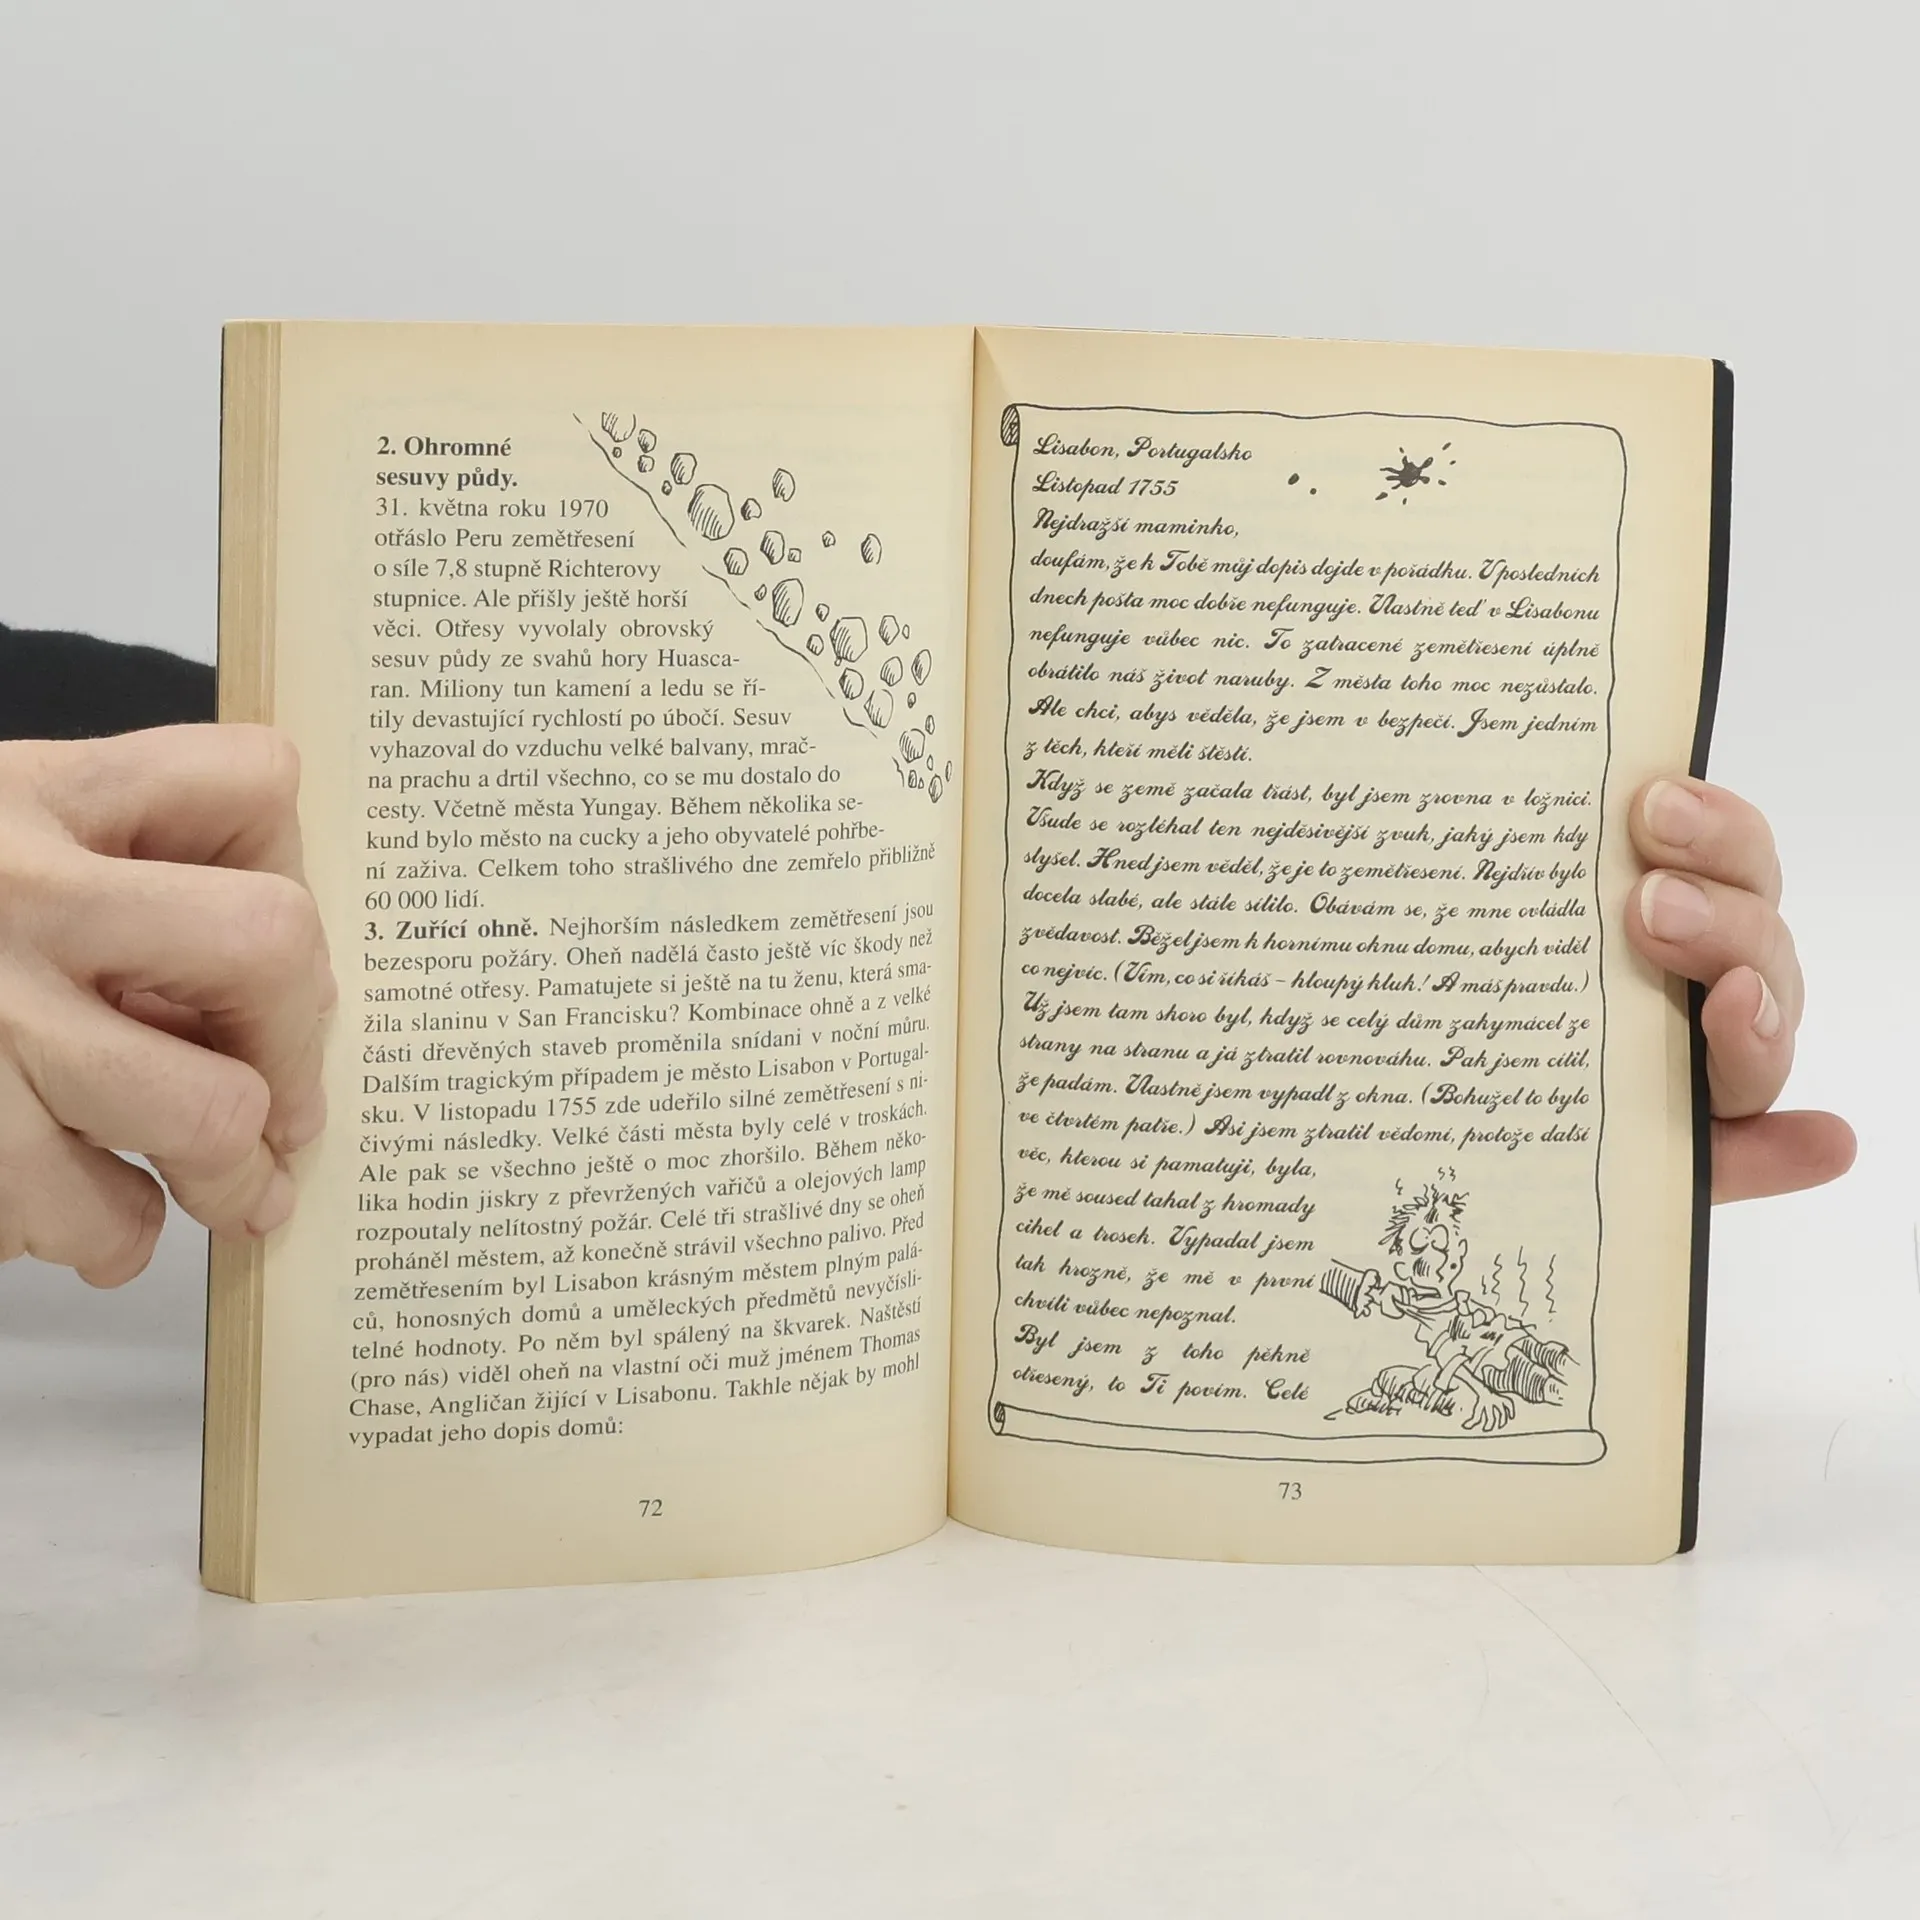 2. Ohromné
sesuvy půdy.
31. května roku 1970
otřáslo Peru zemětřesení
o síle 7,8 stupně Richterovy
stupnice. Ale přišly ještě horší
věci. Otřesy vyvolaly obrovský
sesuv půdy ze svahů hory Huasca-
ran. Miliony tun kamení a ledu se ří-
tily devastující rychlostí po úbočí. Sesuv
vyhazoval do vzduchu velké balvany, mrač-
na prachu a drtil všechno, co se mu dostalo do
cesty. Včetně města Yungay. Během několika se-
kund bylo město na cucky a jeho obyvatelé pohřbe-
ní zaživa. Celkem toho strašlivého dne zemřelo přibližně
60 000 lidí.
3. Zuřící ohně. Nejhorším následkem zemětřesení jsou
bezesporu požáry. Oheň nadělá často ještě víc škody než
samotné otřesy. Pamatujete si ještě na tu ženu, která sma-
žila slaninu v San Francisku? Kombinace ohně a z velké
části dřevěných staveb proměnila snídani v noční můru.
Dalším tragickým případem je město Lisabon v Portugal-
sku. V listopadu 1755 zde udeřilo silné zemětřesení s ni-
čivými následky. Velké části města byly celé v troskách.
Ale pak se všechno ještě o moc zhoršilo. Během něko-
lika hodin jiskry z převržených vařičů a olejových lamp
rozpoutaly nelítostný požár. Celé tři strašlivé dny se oheň
proháněl městem, až konečně strávil všechno palivo. Před
zemětřesením byl Lisabon krásným městem plným palá-
ců, honosných domů a uměleckých předmětů nevyčísli-
telné hodnoty. Po něm byl spálený na škvarek. Naštěstí
(pro nás) viděl oheň na vlastní oči muž jménem Thomas
Chase, Angličan žijící v Lisabonu. Takhle nějak by mohl
vypadat jeho dopis domů:
72
Lisabon, Portugalsko
Listopad 1755
Nejdražší maminko,
doufám, že k Tobě můj dopis dojde v pořádku. V posledních
dnech pošta moc dobře nefunguje. Vlastně teď v Lisabonu
nefunguje vůbec nic. To zatracené zemětřesení úplně
obrátilo náš život naruby. Z města toho moc nezůstalo.
Ale chci, abys věděla, že jsem v bezpečí. Jsem jedním
z těch, kteří měli štěstí.
Když se země začala třást, byl jsem zrovna v ložnici.
Všude se rozléhal ten nejděsivější zvuk, jaký jsem kdy
slyšel. Hned jsem věděl, že je to zemětřesení. Nejdřív bylo
docela slabé, ale stále sílilo. Obávám se, že mne ovládla
zvědavost. Běžel jsem k hornímu oknu domu, abych viděl
co nejvíc. (Vím, co si říkáš – hloupý kluk! A máš pravdu.)
Už jsem tam skoro byl, když se celý dům zakymácel ze
strany na stranu a já ztratil rovnováhu. Pak jsem cítil,
že padám. Vlastně jsem vypadl z okna. (Bohužel to bylo
ve čtvrtém patře.) Asi jsem ztratil vědomí, protože další
věc, kterou si pamatuji, byla,
že mě soused tahal z hromady
cihel a trosek. Vypadal jsem
tak hrozně, že mě v první
chvíli vůbec nepoznal.
Byl jsem z toho pěkně
otřesený, to Ti povím. Celé
73